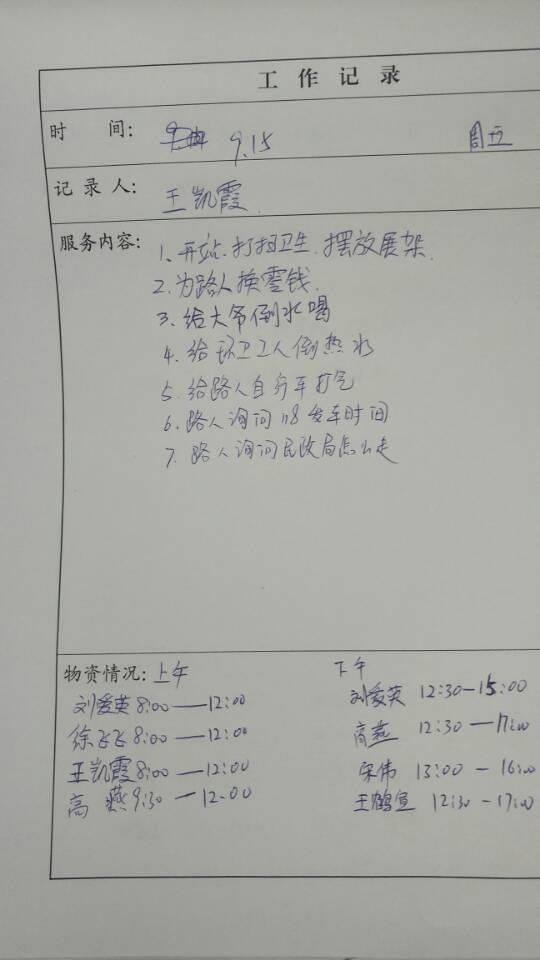 工作记录
时 间: 9.15 周五
记录人: 王凯霞
服务内容: 1、开站、打扫卫生、摆放展架.
2、为路人换零钱.
3、给大爷倒水喝
4、给环卫工人倒热水
5、给路人自行车打气
6、路人询问118发车时间
7、路人询问民政局怎么走
物资情况: 上午
刘爱英 8:00—12:00
徐飞飞 8:00—12:00
王凯霞 8:00—12:00
高燕 9:30—12:00
下午
刘爱英 12:30—15:00
高燕 12:30—17:00
宋伟 13:00—16:00
王鹤宣 12:30—17:00